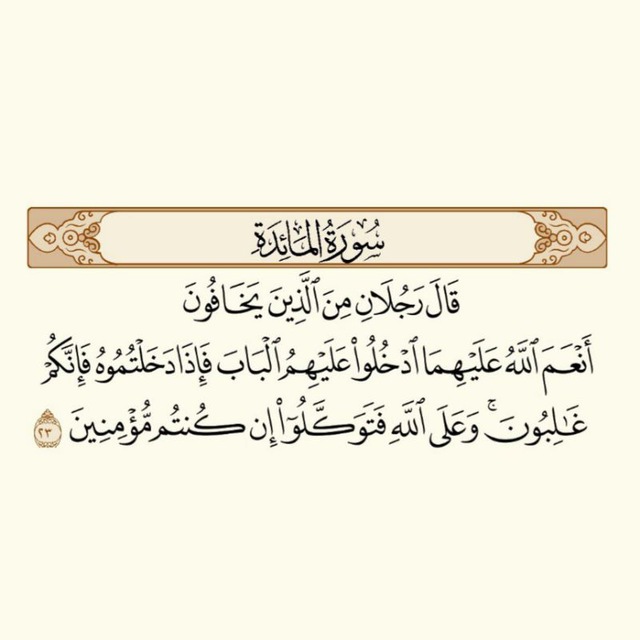 سُورَةُ المَائِدَةِ
قَالَ رَجُلَانِ مِنَ ٱلَّذِينَ يَخَافُونَ
أَنۡعَمَ ٱللَّهُ عَلَيۡهِمَا ٱدۡخُلُواْ عَلَيۡهِمُ ٱلۡبَابَ فَإِذَا دَخَلۡتُمُوهُ فَإِنَّكُمۡ
غَٰلِبُونَۚ وَعَلَى ٱللَّهِ فَتَوَكَّلُوٓاْ إِن كُنتُم مُّؤۡمِنِينَ ٢٣